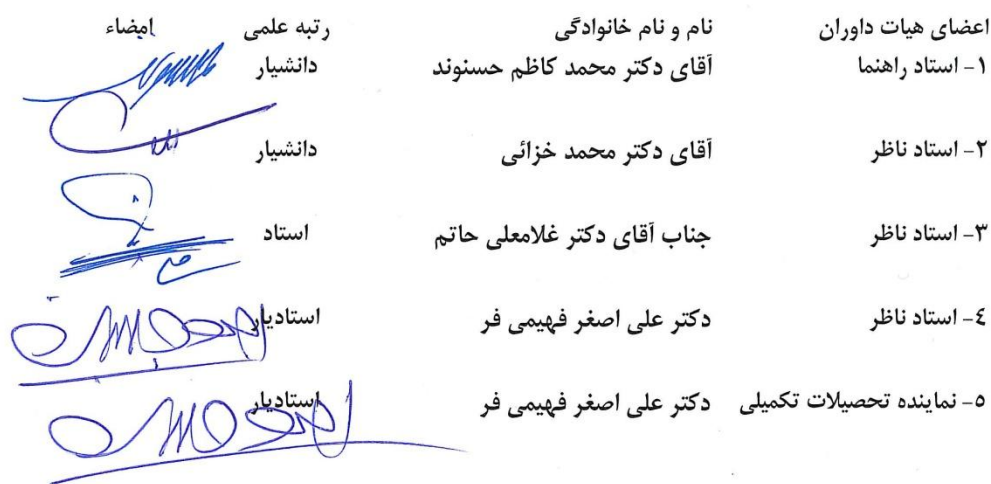 اعضای هیات داوران نام و نام خانوادگی رتبه علمی امضاء
۱- استاد راهنما آقای دکتر محمد کاظم حسنوند دانشیار
۲- استاد ناظر آقای دکتر محمد خزائی دانشیار
۳- استاد ناظر جناب آقای دکتر غلامعلی حاتم استاد
٤- استاد ناظر دکتر علی اصغر فهیمی فر استادیار
٥- نماینده تحصیلات تکمیلی دکتر علی اصغر فهیمی فر استادیار